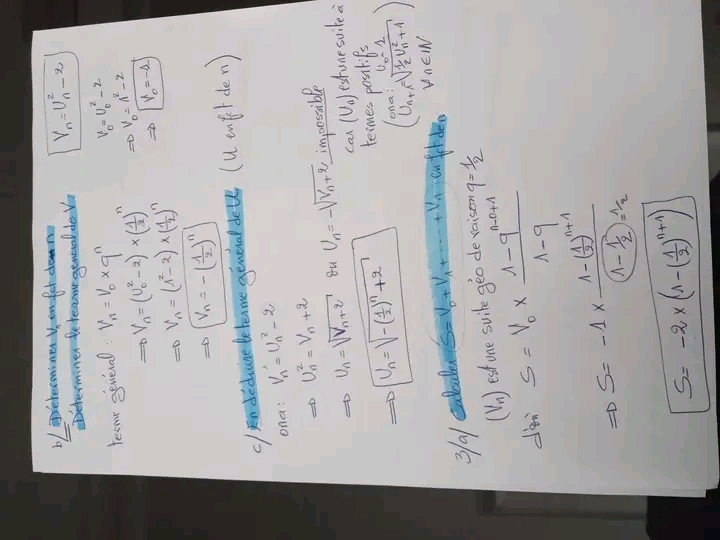 b/ Déterminer Vn en fct de n
Déterminer le terme général de V
Vn = Un² - 2
terme général : Vn = V0 × qⁿ
V0 = U0² - 2
⇒ Vn = (U0² - 2) × (1/2)ⁿ
⇒ V0 = 1² - 2
⇒ Vn = (1² - 2) × (1/2)ⁿ
⇒ V0 = -1
⇒ Vn = - (1/2)ⁿ
c/ En déduire le terme général de U (U en fct de n)
ona : Vn = Un² - 2
⇒ Un² = Vn + 2
⇒ Un = √Vn + 2 ou Un = -√Vn + 2 impossible
car (Un) est une suite à
termes positifs
(ona : U0 = 1
Un+1 = √1/2 Un² + 1)
∀ n ∈ IN
⇒ Un = √-(1/2)ⁿ + 2
3/a/ Calculer S = V0 + V1 + ..... + Vn en fct de n
(Vn) est une suite géo de raison q = 1/2
d'où S = V0 × 1 - q^n-0+1 / 1 - q
⇒ S = -1 × 1 - (1/2)^n+1 / 1 - 1/2 = 1/2
S = -2 × (1 - (1/2)^n+1)